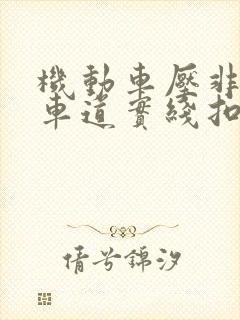 機動車壓非
車道實綫扣
倩兮錦汐